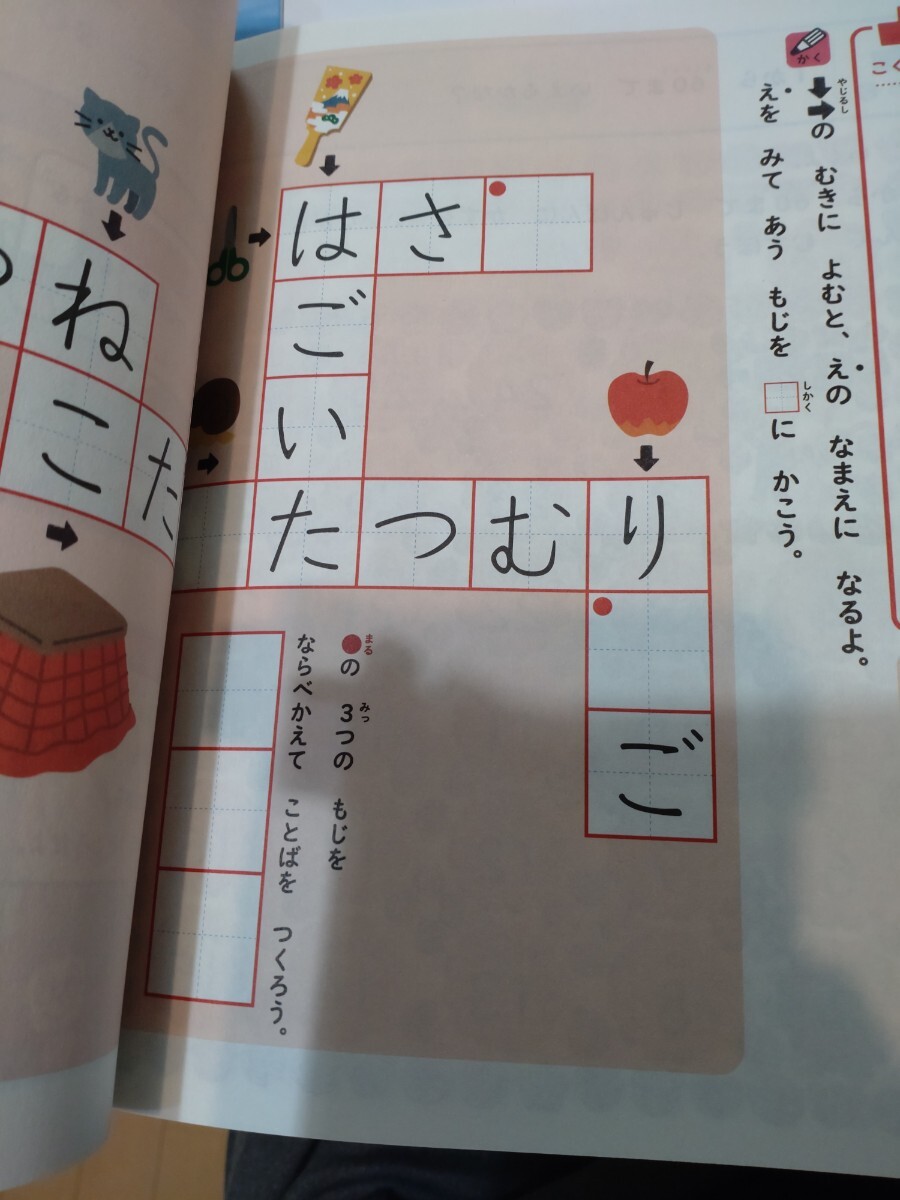 かく
やじるし
の むきに よむと、えの なまえに なるよ。
えを みて あう もじを
しかく
に かこう。
はさ
ご
い
たつむり
ご
まる
の
みっ
3つの もじを
ならべかえて ことばを つくろう。
ね
こた